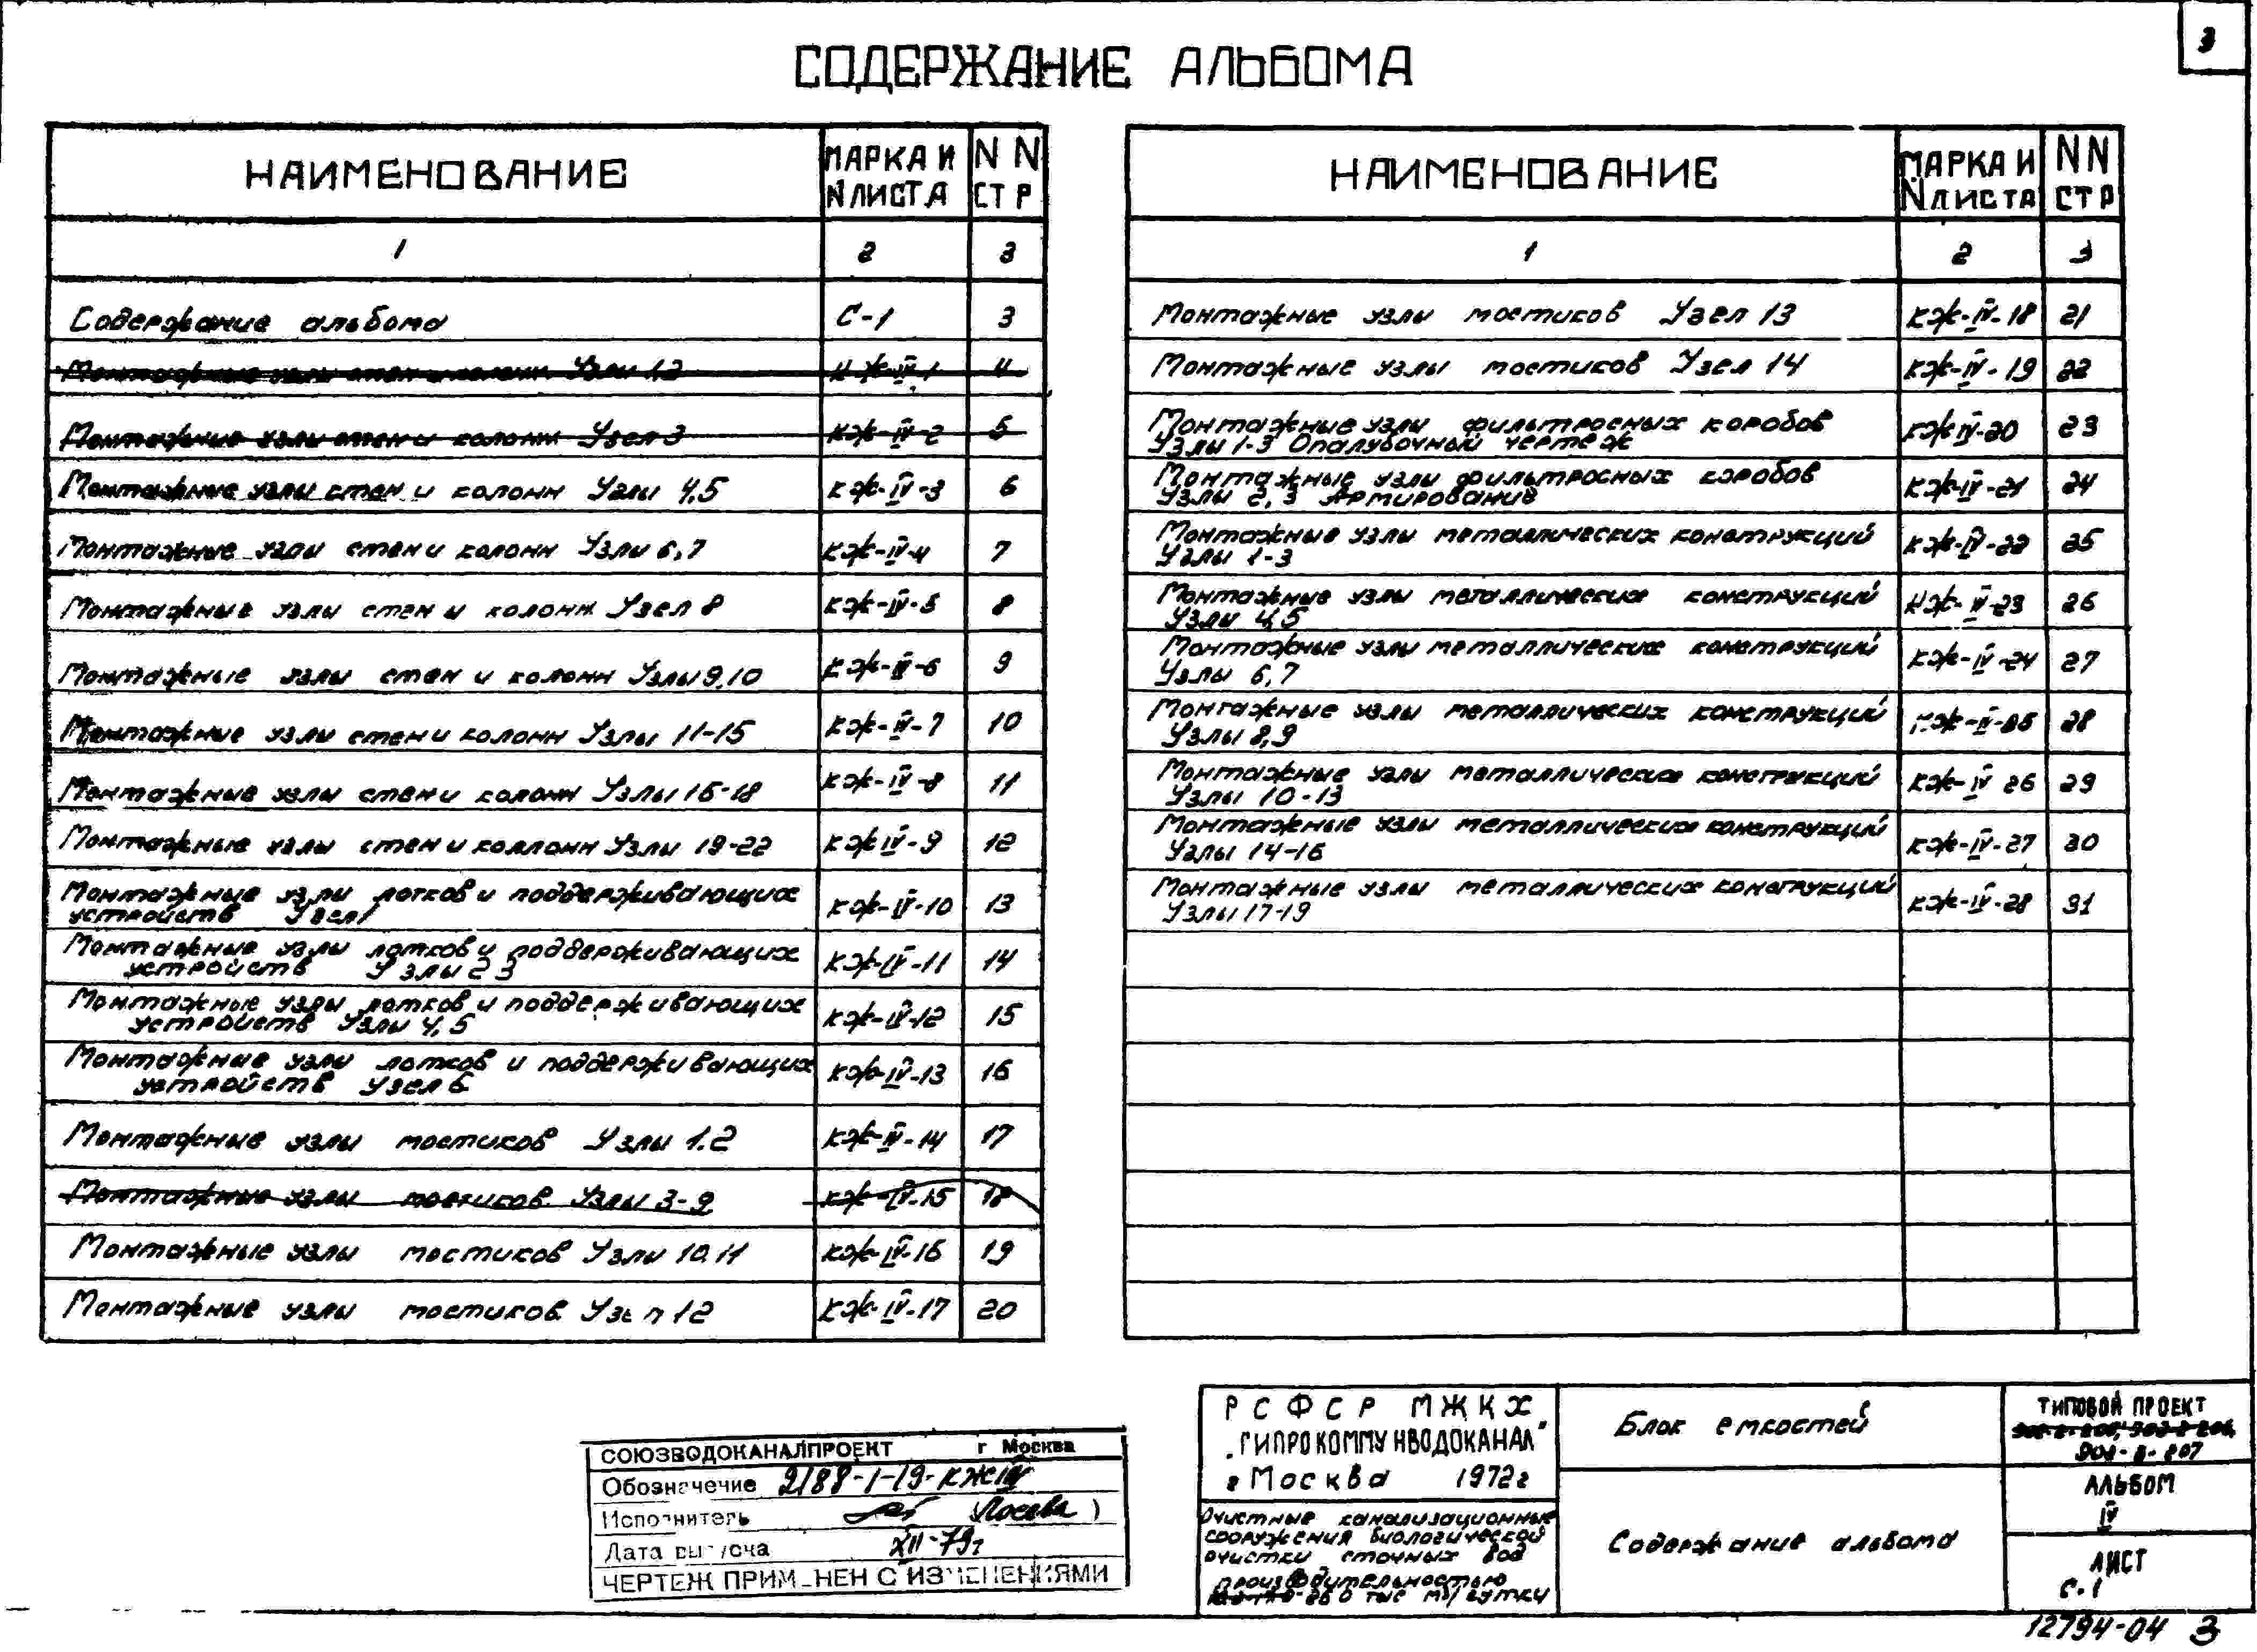 3
СОДЕРЖАНИЕ АЛЬБОМА
НАИМЕНОВАНИЕ МАРКА И N ЛИСТА N N СТР
1 2 3
Содержание альбома С-1 3
Монтажные узлы стен и колонн Узлы 1,2 КЖ-IV-1 4
Монтажные узлы стен и колонн Узел 3 КЖ-IV-2 5
Монтажные узлы стен и колонн Узлы 4,5 КЖ-IV-3 6
Монтажные узлы стен и колонн Узлы 6,7 КЖ-IV-4 7
Монтажные узлы стен и колонн Узел 8 КЖ-IV-5 8
Монтажные узлы стен и колонн Узлы 9,10 КЖ-IV-6 9
Монтажные узлы стен и колонн Узлы 11-15 КЖ-IV-7 10
Монтажные узлы стен и колонн Узлы 16-18 КЖ-IV-8 11
Монтажные узлы стен и коллонн Узлы 19-22 КЖ IV-9 12
Монтажные узлы лотков и поддерживающих
устройств Узел 1 КЖ-IV-10 13
Монтажные узлы лотков и поддерживающих
устройств Узлы 2 3 КЖ-IV-11 14
Монтажные узлы лотков и поддерживающих
устройств Узлы 4,5 КЖ-IV-12 15
Монтажные узлы лотков и поддерживающих
устройств Узел 6 КЖ-IV-13 16
Монтажные узлы мостиков Узлы 1.2 КЖ-IV-14 17
Монтажные узлы мостиков Узлы 3-9 КЖ-IV-15 18
Монтажные узлы мостиков Узлы 10,11 КЖ-IV-16 19
Монтажные узлы мостиков Узел 12 КЖ-IV-17 20
НАИМЕНОВАНИЕ МАРКА И N ЛИСТА NN СТР
1 2 3
Монтажные узлы мостиков Узел 13 КЖ-IV-18 21
Монтажные узлы мостиков Узел 14 КЖ-IV-19 22
Монтажные узлы фильтросных коробов
Узлы 1-3 Опалубочный чертеж КЖ IV-20 23
Монтажные узлы фильтросных коробов
Узлы 2,3 Армирование КЖ-IV-21 24
Монтажные узлы металлических конструкций
Узлы 1-3 КЖ-IV-22 25
Монтажные узлы металлических конструкций
Узлы 4,5 КЖ-IV-23 26
Монтажные узлы металлических конструкций
Узлы 6,7 КЖ-IV-24 27
Монтажные узлы металлических конструкций
Узлы 8,9 КЖ-IV-25 28
Монтажные узлы металлических конструкций
Узлы 10-13 КЖ-IV 26 29
Монтажные узлы металлических конструкций
Узлы 14-16 КЖ-IV-27 30
Монтажные узлы металлических конструкций
Узлы 17-19 КЖ-IV-28 31
СОЮЗВОДОКАНАЛПРОЕКТ г Москва
Обозначение 2188-1-19-КЖIV
Исполнитель Лосева )
Дата выпуска XII-79г
ЧЕРТЕЖ ПРИМЕНЕН С ИЗМЕНЕНИЯМИ
РСФСР МЖКХ
„ГИПРОКОММУНВОДОКАНАЛ"
г Москва 1972г
Очистные канализационные
сооружения биологической
очистки сточных вод
производительностью
280 тыс м3/сутки
Блок емкостей
Содержание альбома
ТИПОВОЙ ПРОЕКТ
902-2-207
АЛЬБОМ
IV
ЛИСТ
С.1
12794-04 3